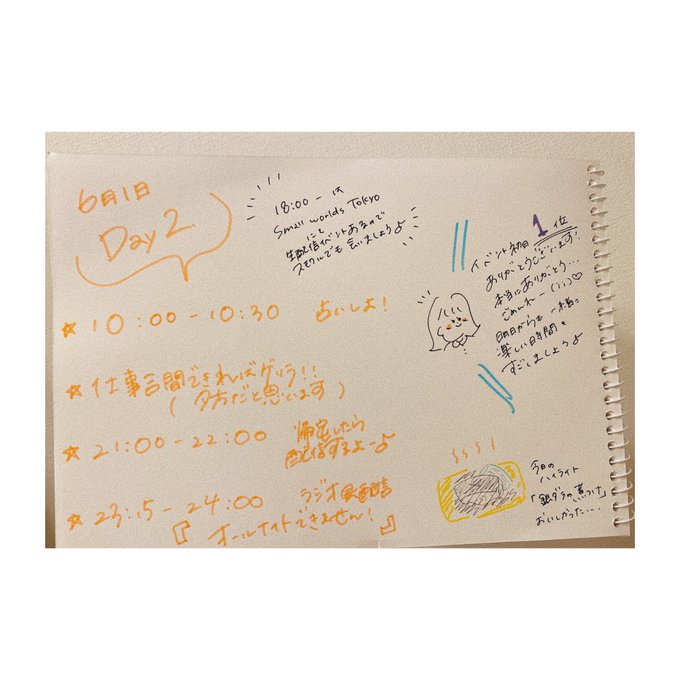 6月1日
Day 2
18:00 - は
Small worlds Tokyo
にて
生配信イベントあるので
スモワルでも会いましょうよ
イベント初日 1位
ありがとうございます!
本当にありがとう…
ごめんねー (;;)♡
明日からも一緒に
楽しい時間を
すごしましょうよ
☆ 10:00 - 10:30 占いしよ!
☆ 仕事合間できればゲリラ!!
( 夕方だと思います )
☆ 21:00 - 22:00 帰宅したら
配信するよーよ
☆ 23:15 - 24:00 ラジオ風配信
『オールナイトできません!』
今日の
ハイライト
「銀ダラの煮つけ」
おいしかった…